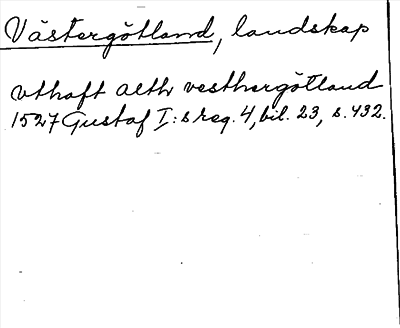 Västergötland, landskap
vthaft alth vesthergötland
1527 Gustaf I:s reg. 4, bil. 23, s. 432.